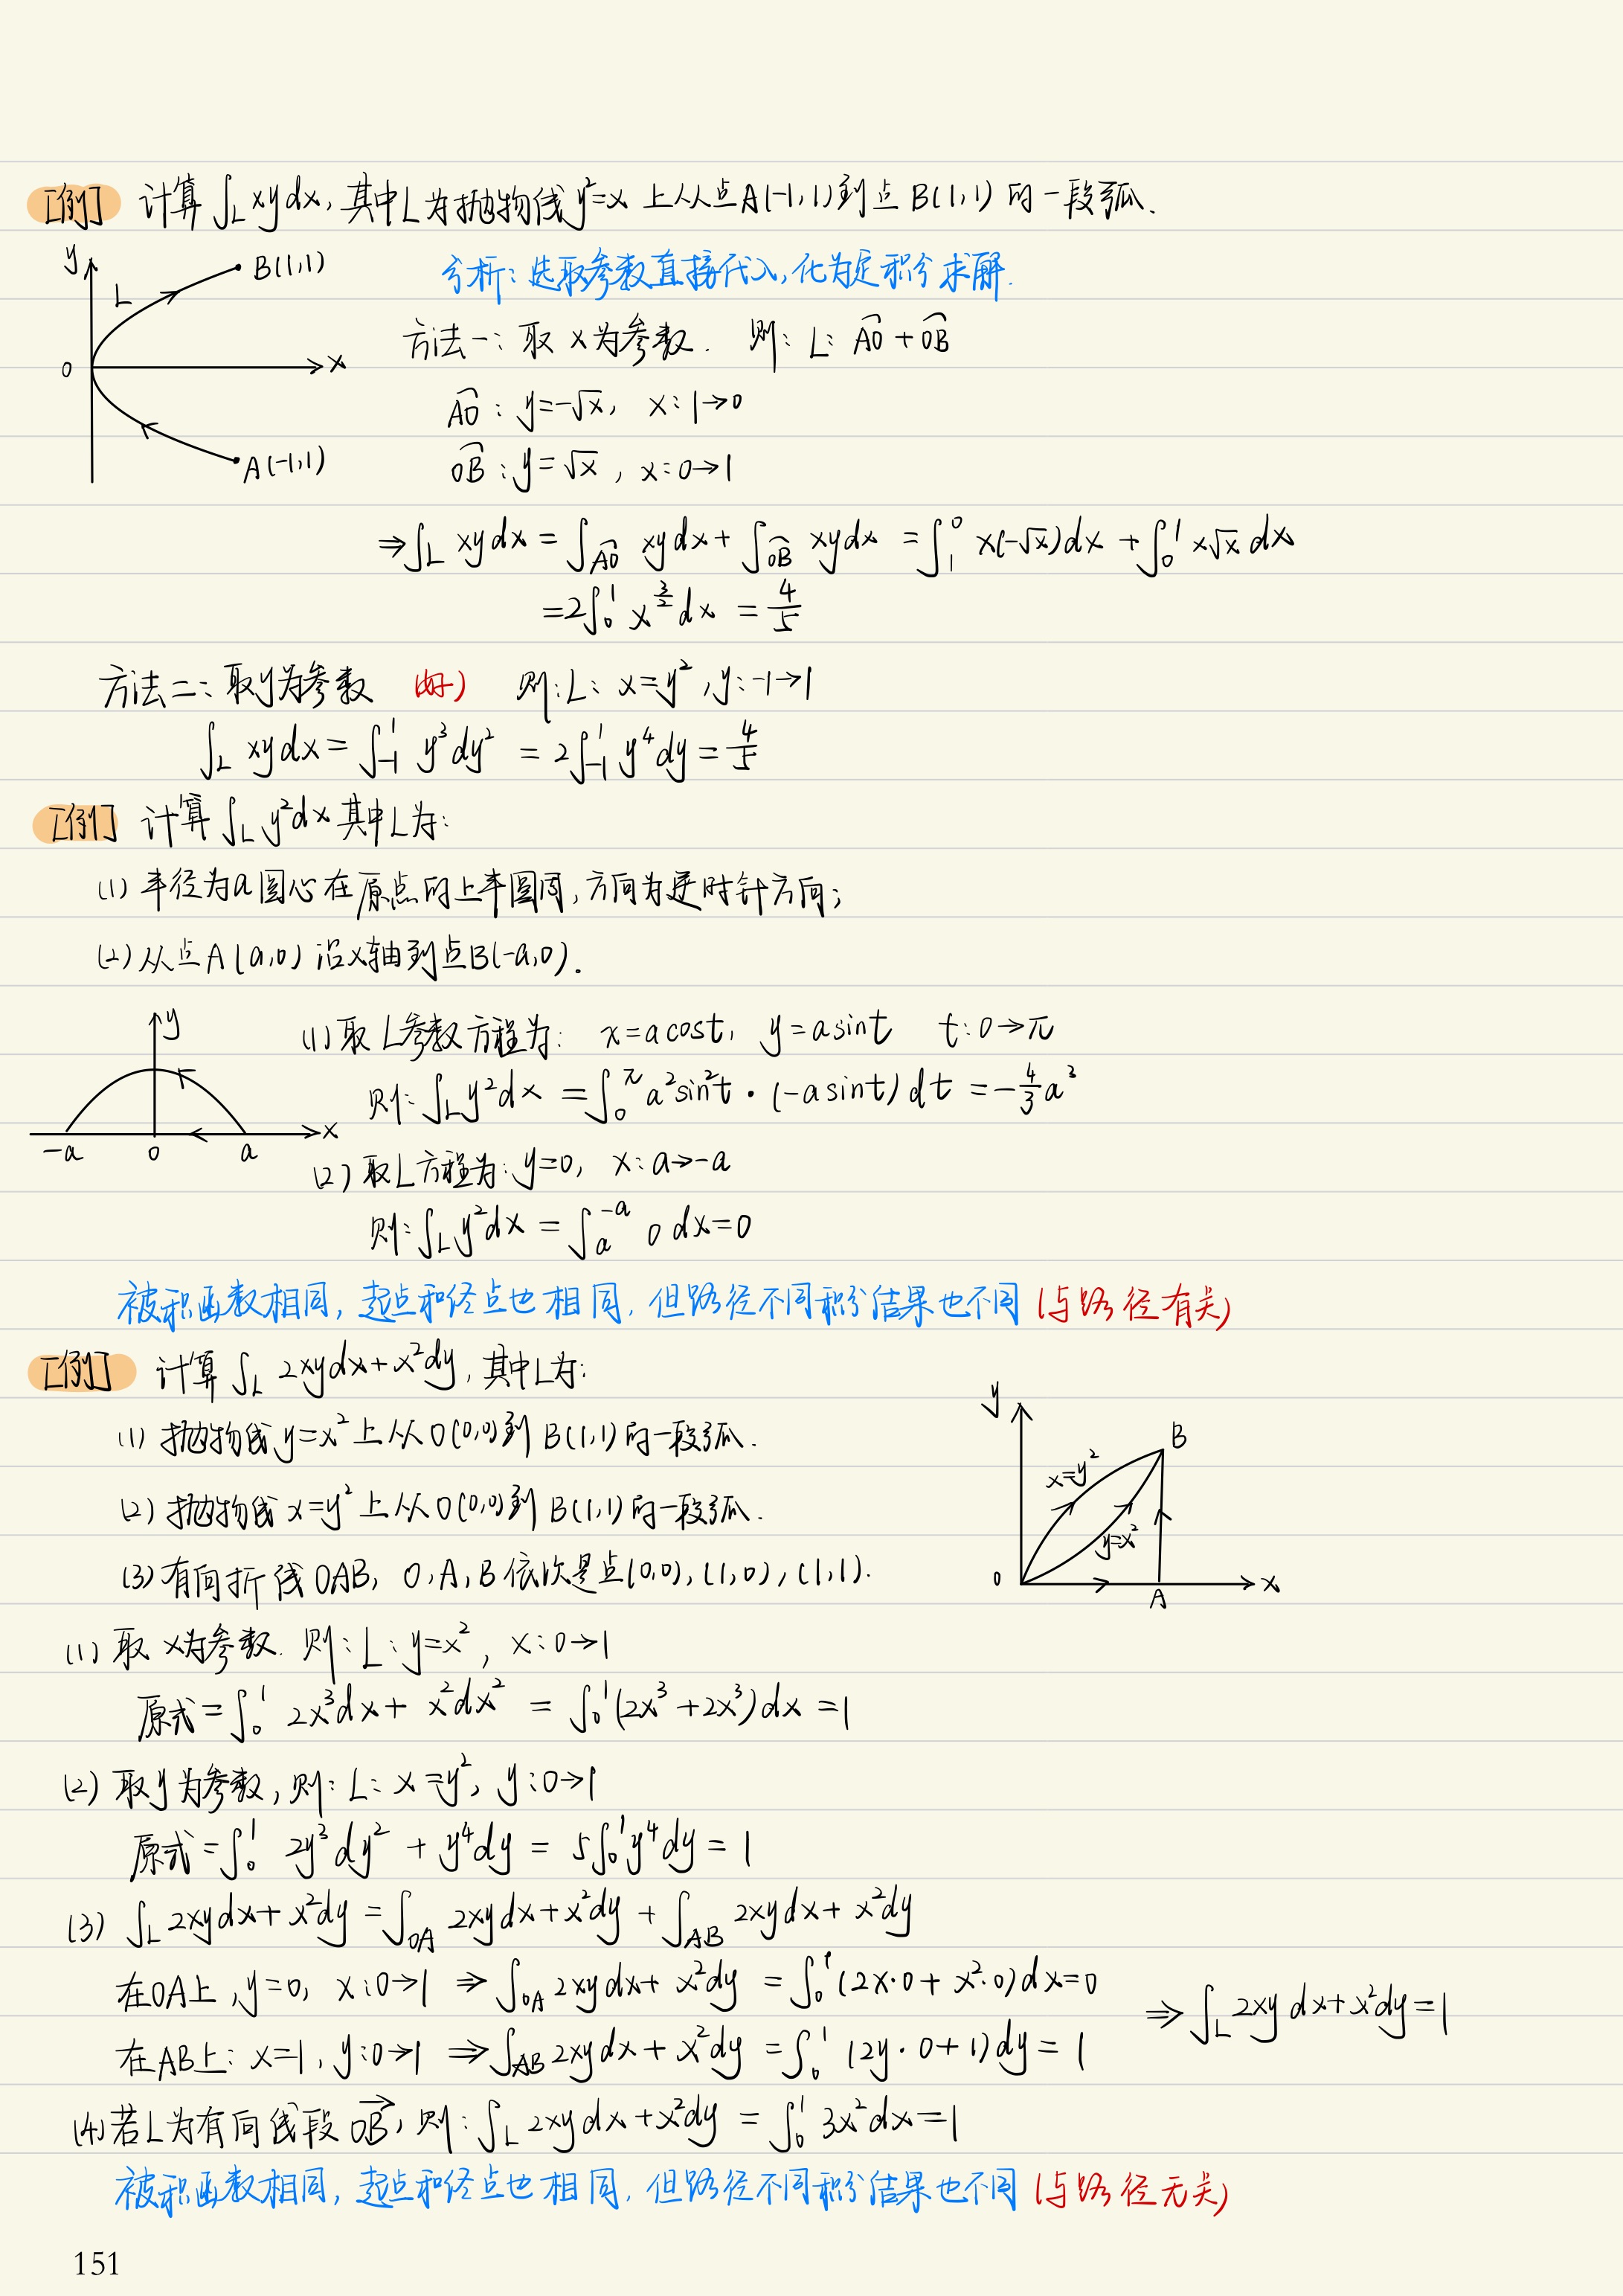 [例] 计算 ∫_L xydx, 其中L为抛物线y²=x 上从点A(-1,1)到点B(1,1)的一段弧.
y
B(1,1)
L
0
x
A(-1,1)
分析: 选取参数直接代入, 化为定积分求解.
方法一: 取 x为参数. 则: L: A͡O + O͡B
A͡O: y=-√x, x: 1→0
O͡B: y=√x, x: 0→1
⇒∫_L xydx = ∫_A͡O xydx + ∫_O͡B xydx = ∫_1^0 x(-√x)dx + ∫_0^1 x√x dx
=2∫_0^1 x^(3/2) dx = 4/5
方法二: 取y为参数 (好) 则: L: x=y², y: -1→1
∫_L xydx = ∫_{-1}^1 y³dy² = 2∫_{-1}^1 y⁴dy = 4/5
[例] 计算 ∫_L y²dx 其中L为:
(1) 半径为a圆心在原点的上半圆周, 方向为逆时针方向;
(2) 从点A(a,0) 沿x轴到点B(-a,0).
y
x
-a 0 a
(1) 取L参数方程为: x=acost, y=asint t: 0→π
则: ∫_L y²dx = ∫_0^π a²sin²t · (-asint)dt = -4/3 a³
(2) 取L方程为: y=0, x: a→-a
则: ∫_L y²dx = ∫_a^{-a} 0 dx=0
被积函数相同, 起点和终点也相同, 但路径不同积分结果也不同 (与路径有关)
[例] 计算 ∫_L 2xydx+x²dy, 其中L为:
(1) 抛物线y=x²上从O(0,0)到B(1,1)的一段弧.
(2) 抛物线x=y²上从O(0,0)到B(1,1)的一段弧.
(3) 有向折线OAB, O,A,B依次是点(0,0), (1,0), (1,1).
y
B
x=y²
y=x²
0
A
x
(1) 取 x为参数. 则: L: y=x², x: 0→1
原式=∫_0^1 2x³dx + x²dx² = ∫_0^1 (2x³+2x³)dx =1
(2) 取y为参数, 则: L: x=y², y: 0→1
原式=∫_0^1 2y³dy² + y⁴dy = 5∫_0^1 y⁴dy = 1
(3) ∫_L 2xydx+x²dy = ∫_OA 2xydx+x²dy + ∫_AB 2xydx+x²dy
在OA上, y=0, x: 0→1 ⇒ ∫_OA 2xydx+x²dy = ∫_0^1 (2x·0+x²·0)dx=0
在AB上: x=1, y: 0→1 ⇒ ∫_AB 2xydx+x²dy = ∫_0^1 (2y·0+1)dy = 1
⇒ ∫_L 2xydx+x²dy=1
(4) 若L为有向线段 O⃗B, 则: ∫_L 2xydx+x²dy = ∫_0^1 3x²dx=1
被积函数相同, 起点和终点也相同, 但路径不同积分结果也不同 (与路径无关)
151